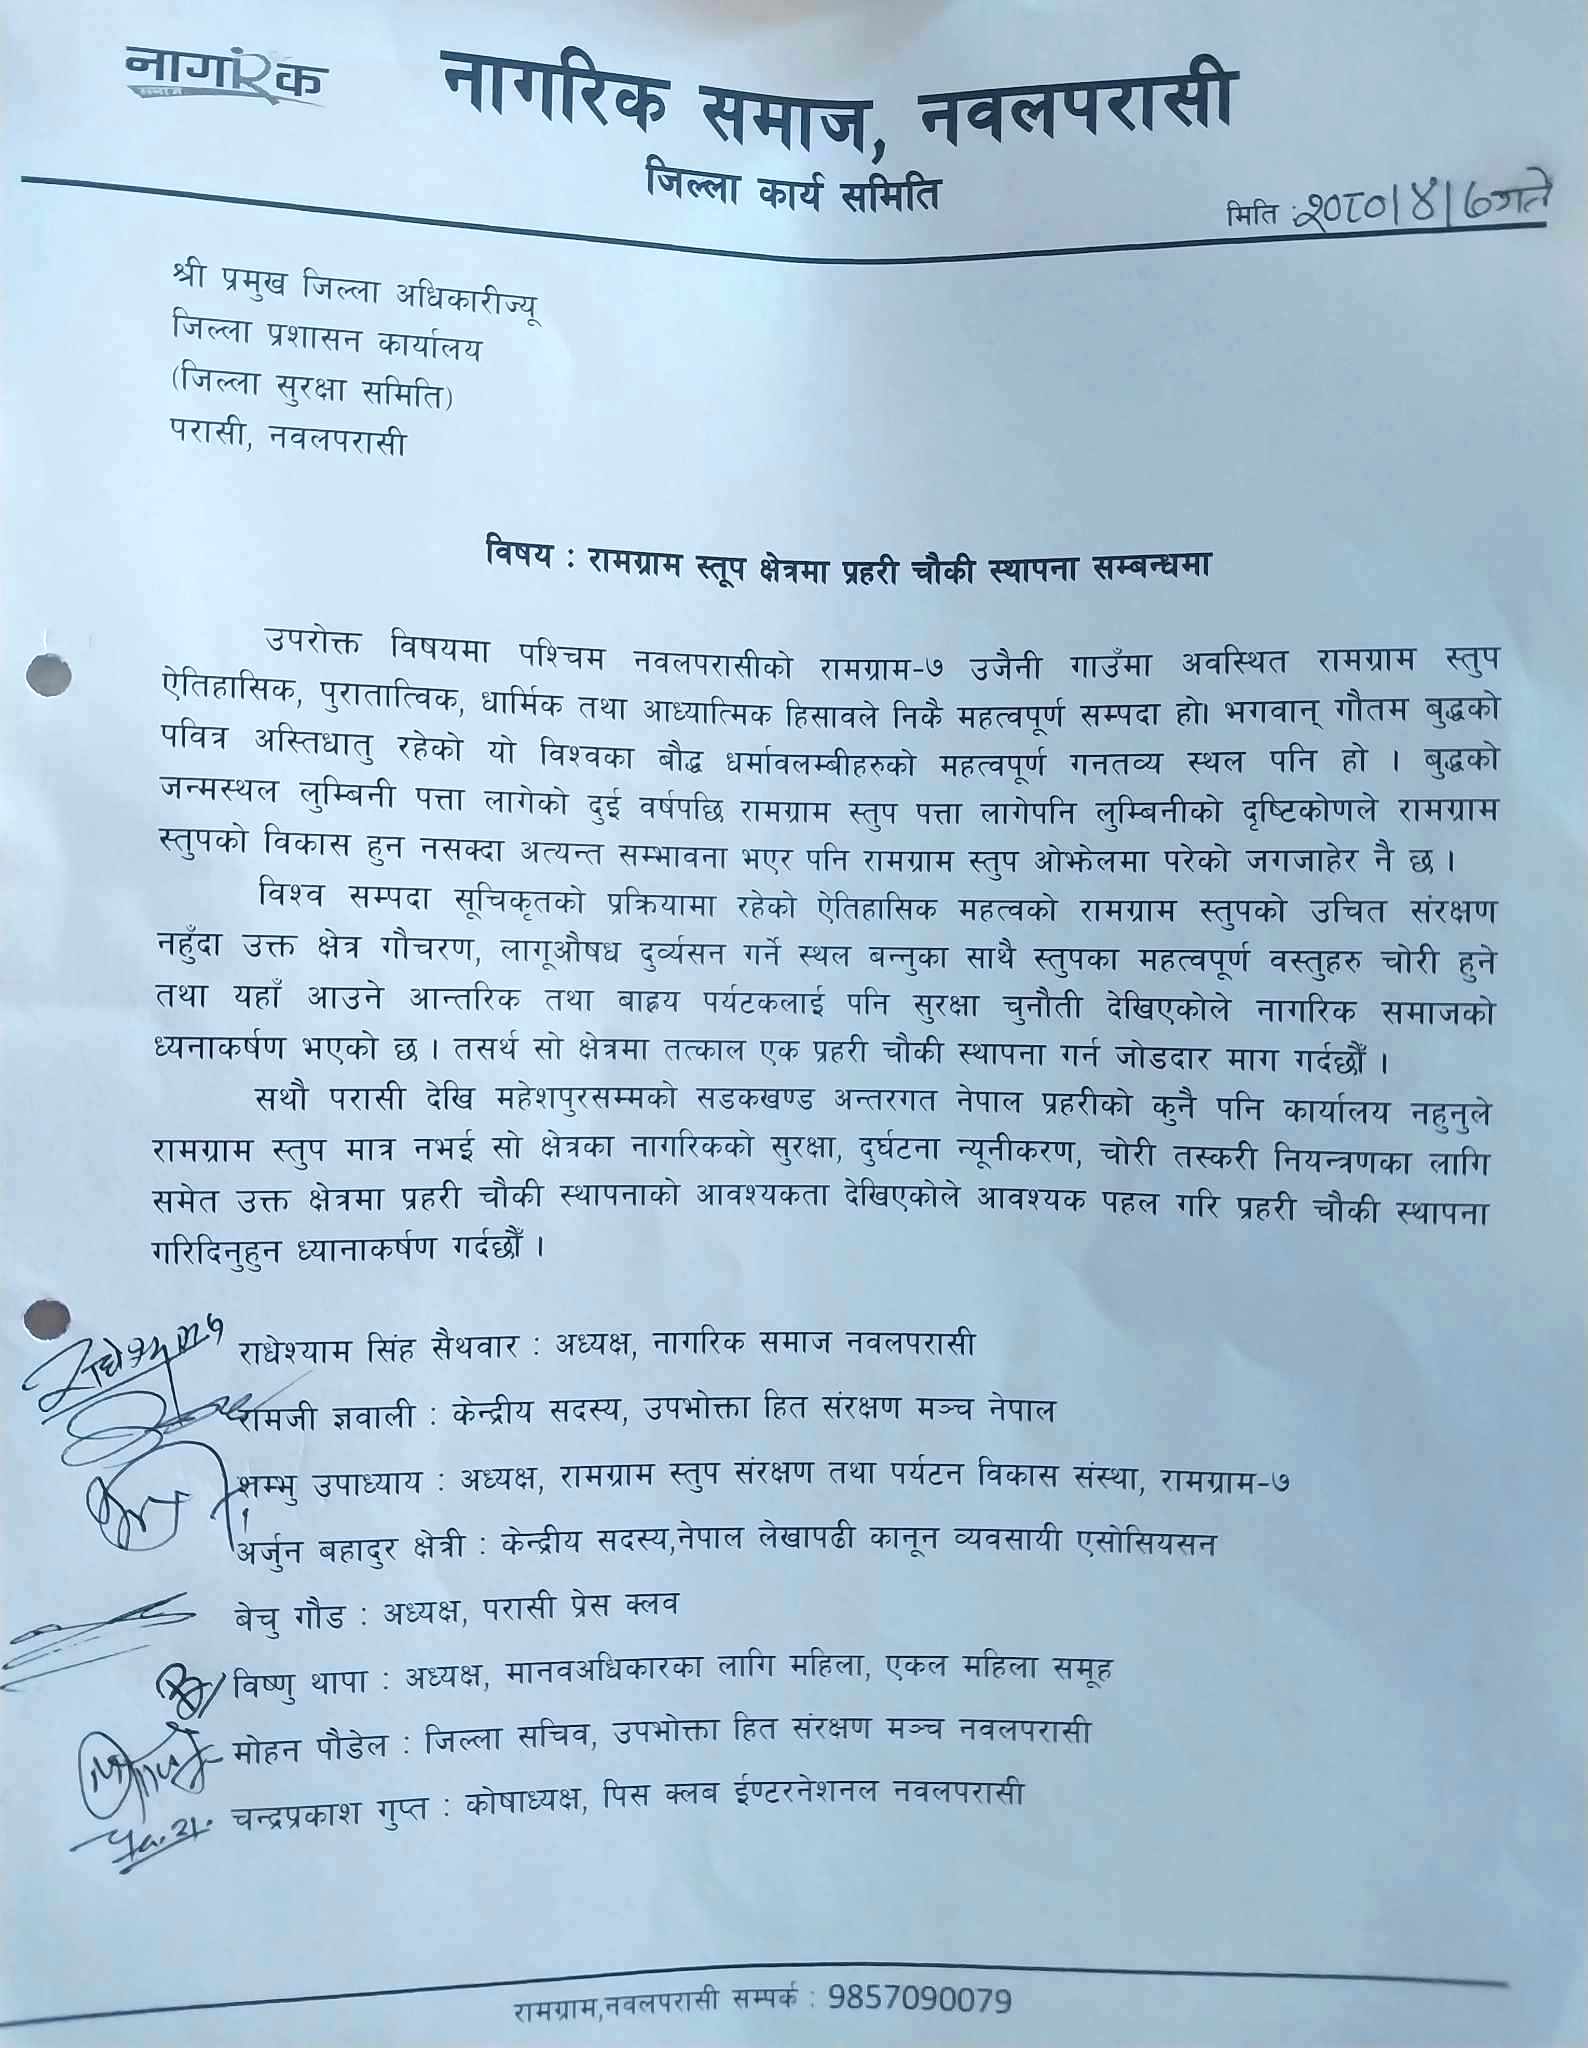 नागरिक
समाज
नागरिक समाज, नवलपरासी
जिल्ला कार्य समिति
मिति :२०८०।४।७गते
श्री प्रमुख जिल्ला अधिकारीज्यू
जिल्ला प्रशासन कार्यालय
(जिल्ला सुरक्षा समिति)
परासी, नवलपरासी
विषय : रामग्राम स्तूप क्षेत्रमा प्रहरी चौकी स्थापना सम्बन्धमा
उपरोक्त विषयमा पश्चिम नवलपरासीको रामग्राम-७ उजैनी गाउँमा अवस्थित रामग्राम स्तुप
ऐतिहासिक, पुरातात्विक, धार्मिक तथा आध्यात्मिक हिसावले निकै महत्वपूर्ण सम्पदा हो। भगवान् गौतम बुद्धको
पवित्र अस्तिधातु रहेको यो विश्वका बौद्ध धर्मावलम्बीहरुको महत्वपूर्ण गनतव्य स्थल पनि हो । बुद्धको
जन्मस्थल लुम्बिनी पत्ता लागेको दुई वर्षपछि रामग्राम स्तुप पत्ता लागेपनि लुम्बिनीको दृष्टिकोणले रामग्राम
स्तुपको विकास हुन नसक्दा अत्यन्त सम्भावना भएर पनि रामग्राम स्तुप ओझेलमा परेको जगजाहेर नै छ ।
विश्व सम्पदा सूचिकृतको प्रक्रियामा रहेको ऐतिहासिक महत्वको रामग्राम स्तुपको उचित संरक्षण
नहुँदा उक्त क्षेत्र गौचरण, लागूऔषध दुर्व्यसन गर्ने स्थल बन्नुका साथै स्तुपका महत्वपूर्ण वस्तुहरु चोरी हुने
तथा यहाँ आउने आन्तरिक तथा बाह्रय पर्यटकलाई पनि सुरक्षा चुनौती देखिएकोले नागरिक समाजको
ध्यनाकर्षण भएको छ । तसर्थ सो क्षेत्रमा तत्काल एक प्रहरी चौकी स्थापना गर्न जोडदार माग गर्दछौँ ।
सथौ परासी देखि महेशपुरसम्मको सडकखण्ड अन्तरगत नेपाल प्रहरीको कुनै पनि कार्यालय नहुनुले
रामग्राम स्तुप मात्र नभई सो क्षेत्रका नागरिकको सुरक्षा, दुर्घटना न्यूनीकरण, चोरी तस्करी नियन्त्रणका लागि
समेत उक्त क्षेत्रमा प्रहरी चौकी स्थापनाको आवश्यकता देखिएकोले आवश्यक पहल गरि प्रहरी चौकी स्थापना
गरिदिनुहुन ध्यानाकर्षण गर्दछौँ ।
राधेश्याम सिंह सैथवार : अध्यक्ष, नागरिक समाज नवलपरासी
रामजी ज्ञवाली : केन्द्रीय सदस्य, उपभोक्ता हित संरक्षण मञ्च नेपाल
शम्भु उपाध्याय : अध्यक्ष, रामग्राम स्तुप संरक्षण तथा पर्यटन विकास संस्था, रामग्राम-७
अर्जुन बहादुर क्षेत्री : केन्द्रीय सदस्य,नेपाल लेखापढी कानून व्यवसायी एसोसियसन
बेचु गौड : अध्यक्ष, परासी प्रेस क्लव
विष्णु थापा : अध्यक्ष, मानवअधिकारका लागि महिला, एकल महिला समूह
मोहन पौडेल : जिल्ला सचिव, उपभोक्ता हित संरक्षण मञ्च नवलपरासी
चन्द्रप्रकाश गुप्त : कोषाध्यक्ष, पिस क्लब ईण्टरनेशनल नवलपरासी
रामग्राम,नवलपरासी सम्पर्क : 9857090079